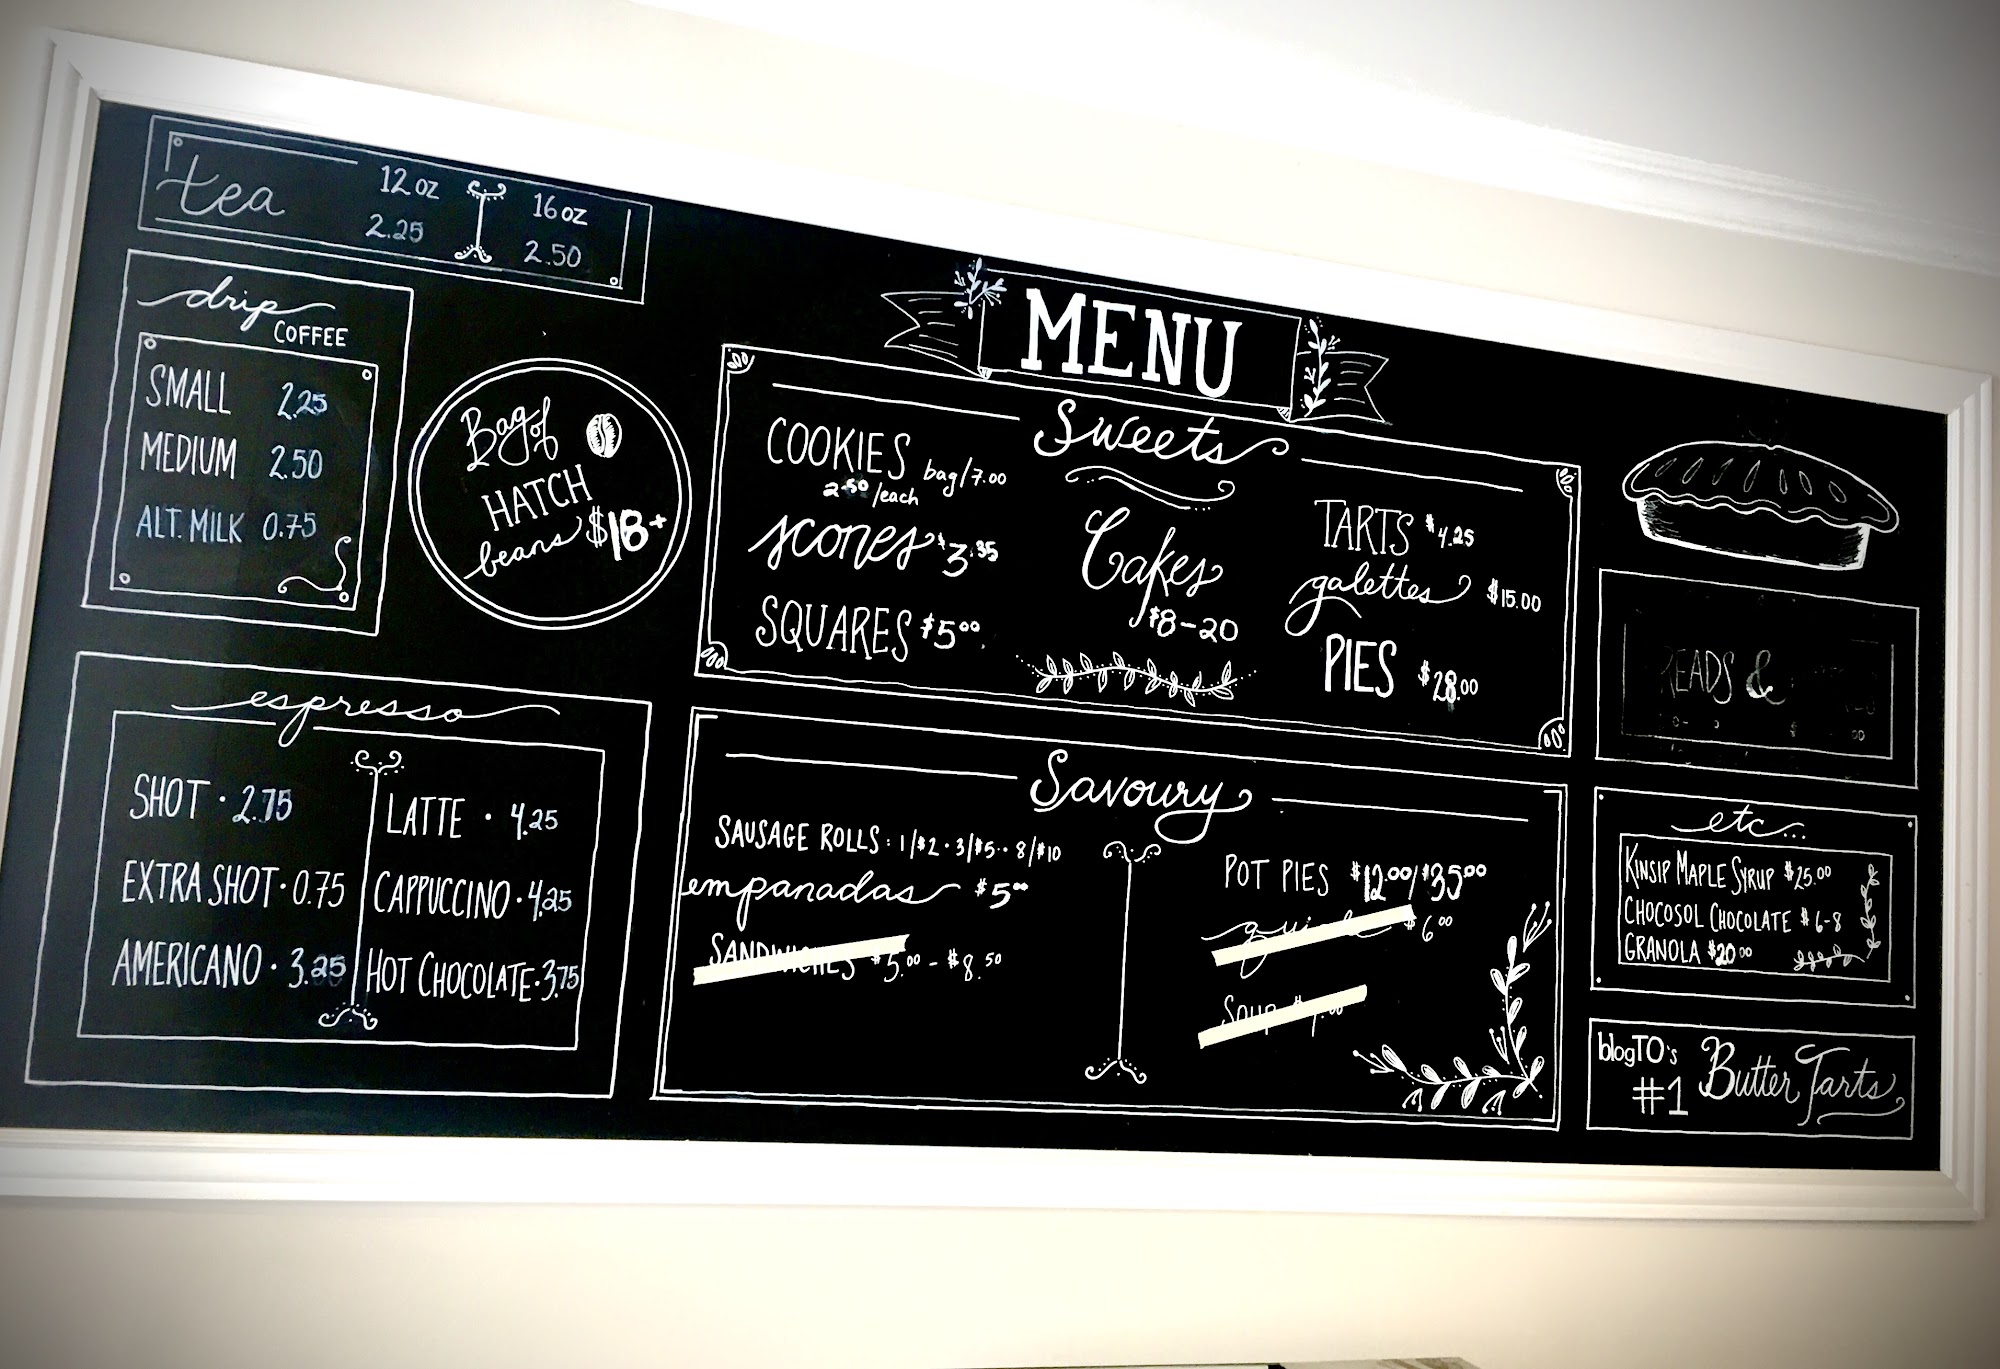 tea 12 oz 16 oz
2.25 2.50
drip
COFFEE
SMALL 2.25
MEDIUM 2.50
ALT. MILK 0.75
Bag of
HATCH
beans $18+
espresso
SHOT · 2.75
EXTRA SHOT · 0.75
AMERICANO · 3.25
LATTE · 4.25
CAPPUCCINO · 4.25
HOT CHOCOLATE · 3.75
MENU
Sweets
COOKIES bag/7.00
2.50/each
scones $3.35
SQUARES $5.00
Cakes
$8-20
TARTS $4.25
galettes $15.00
PIES $28.00
Savoury
SAUSAGE ROLLS: 1/$2 · 3/$5 ·· 8/$10
empanadas $5.00
SANDWICHES $5.00 - $8.50
POT PIES $12.00/$35.00
quiche $6.00
SOUP
READS &
etc...
KINSIP MAPLE SYRUP $25.00
CHOCOSOL CHOCOLATE $6-8
GRANOLA $20.00
blogTO's
#1 Butter Tarts